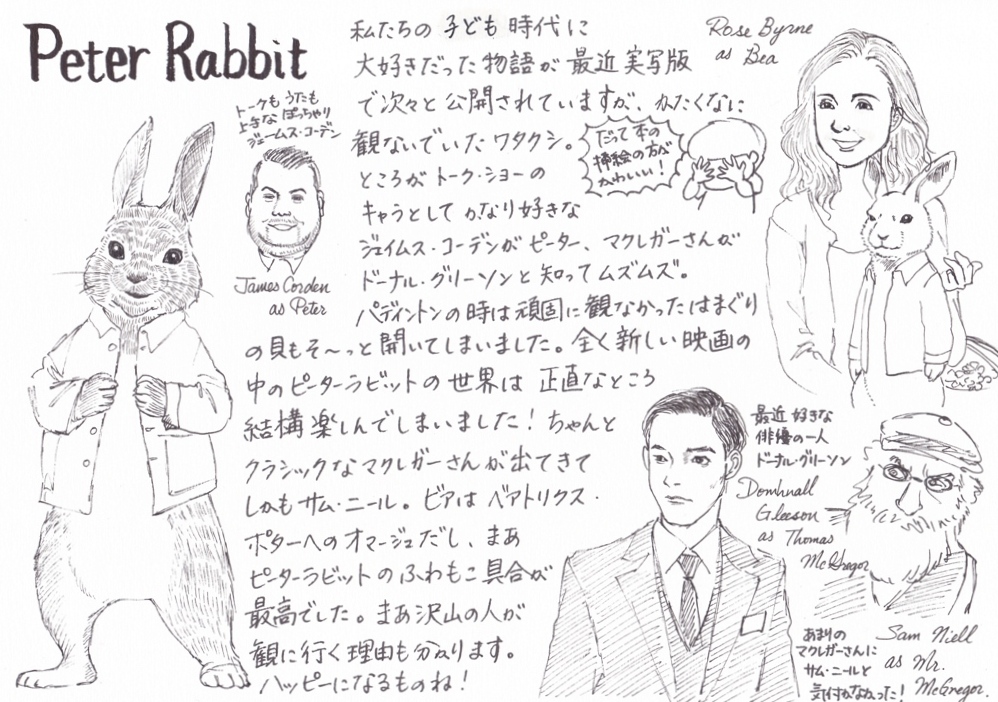 Peter Rabbit
私たちの子ども時代に
大好きだった物語が最近実写版
で次々と公開されていますが、かたくなに
観ないでいたワタクシ。
ところがトーク・ショーの
キャラとしてかなり好きな
ジェイムス・コーデンがピーター、マクレガーさんが
ドーナル・グリーソンと知ってムズムズ。
パディントンの時は頑固に観なかったはまぐり
の貝もそ〜っと開いてしまいました。全く新しい映画の
中のピーターラビットの世界は正直なところ
結構楽しんでしまいました!ちゃんと
クラシックなマクレガーさんが出てきて
しかもサム・ニール。ビアはベアトリクス・
ポターへのオマージュだし、まあ
ピーターラビットのふわもこ具合が
最高でした。まあ沢山の人が
観に行く理由も分かります。
ハッピーになるものね!
トークもうたも
上手なぽっちゃり
ジェームス・コーデン
James Corden
as Peter
だって本の
挿絵の方が
かわいい!
Rose Byrne
as Bea
最近好きな
俳優の一人
ドーナル・グリーソン
Domhnall
Gleeson
as Thomas
McGregor
あまりの
マクレガーさんに
サム・ニールと
気付かなかった!
Sam Niell
as Mr.
McGregor.